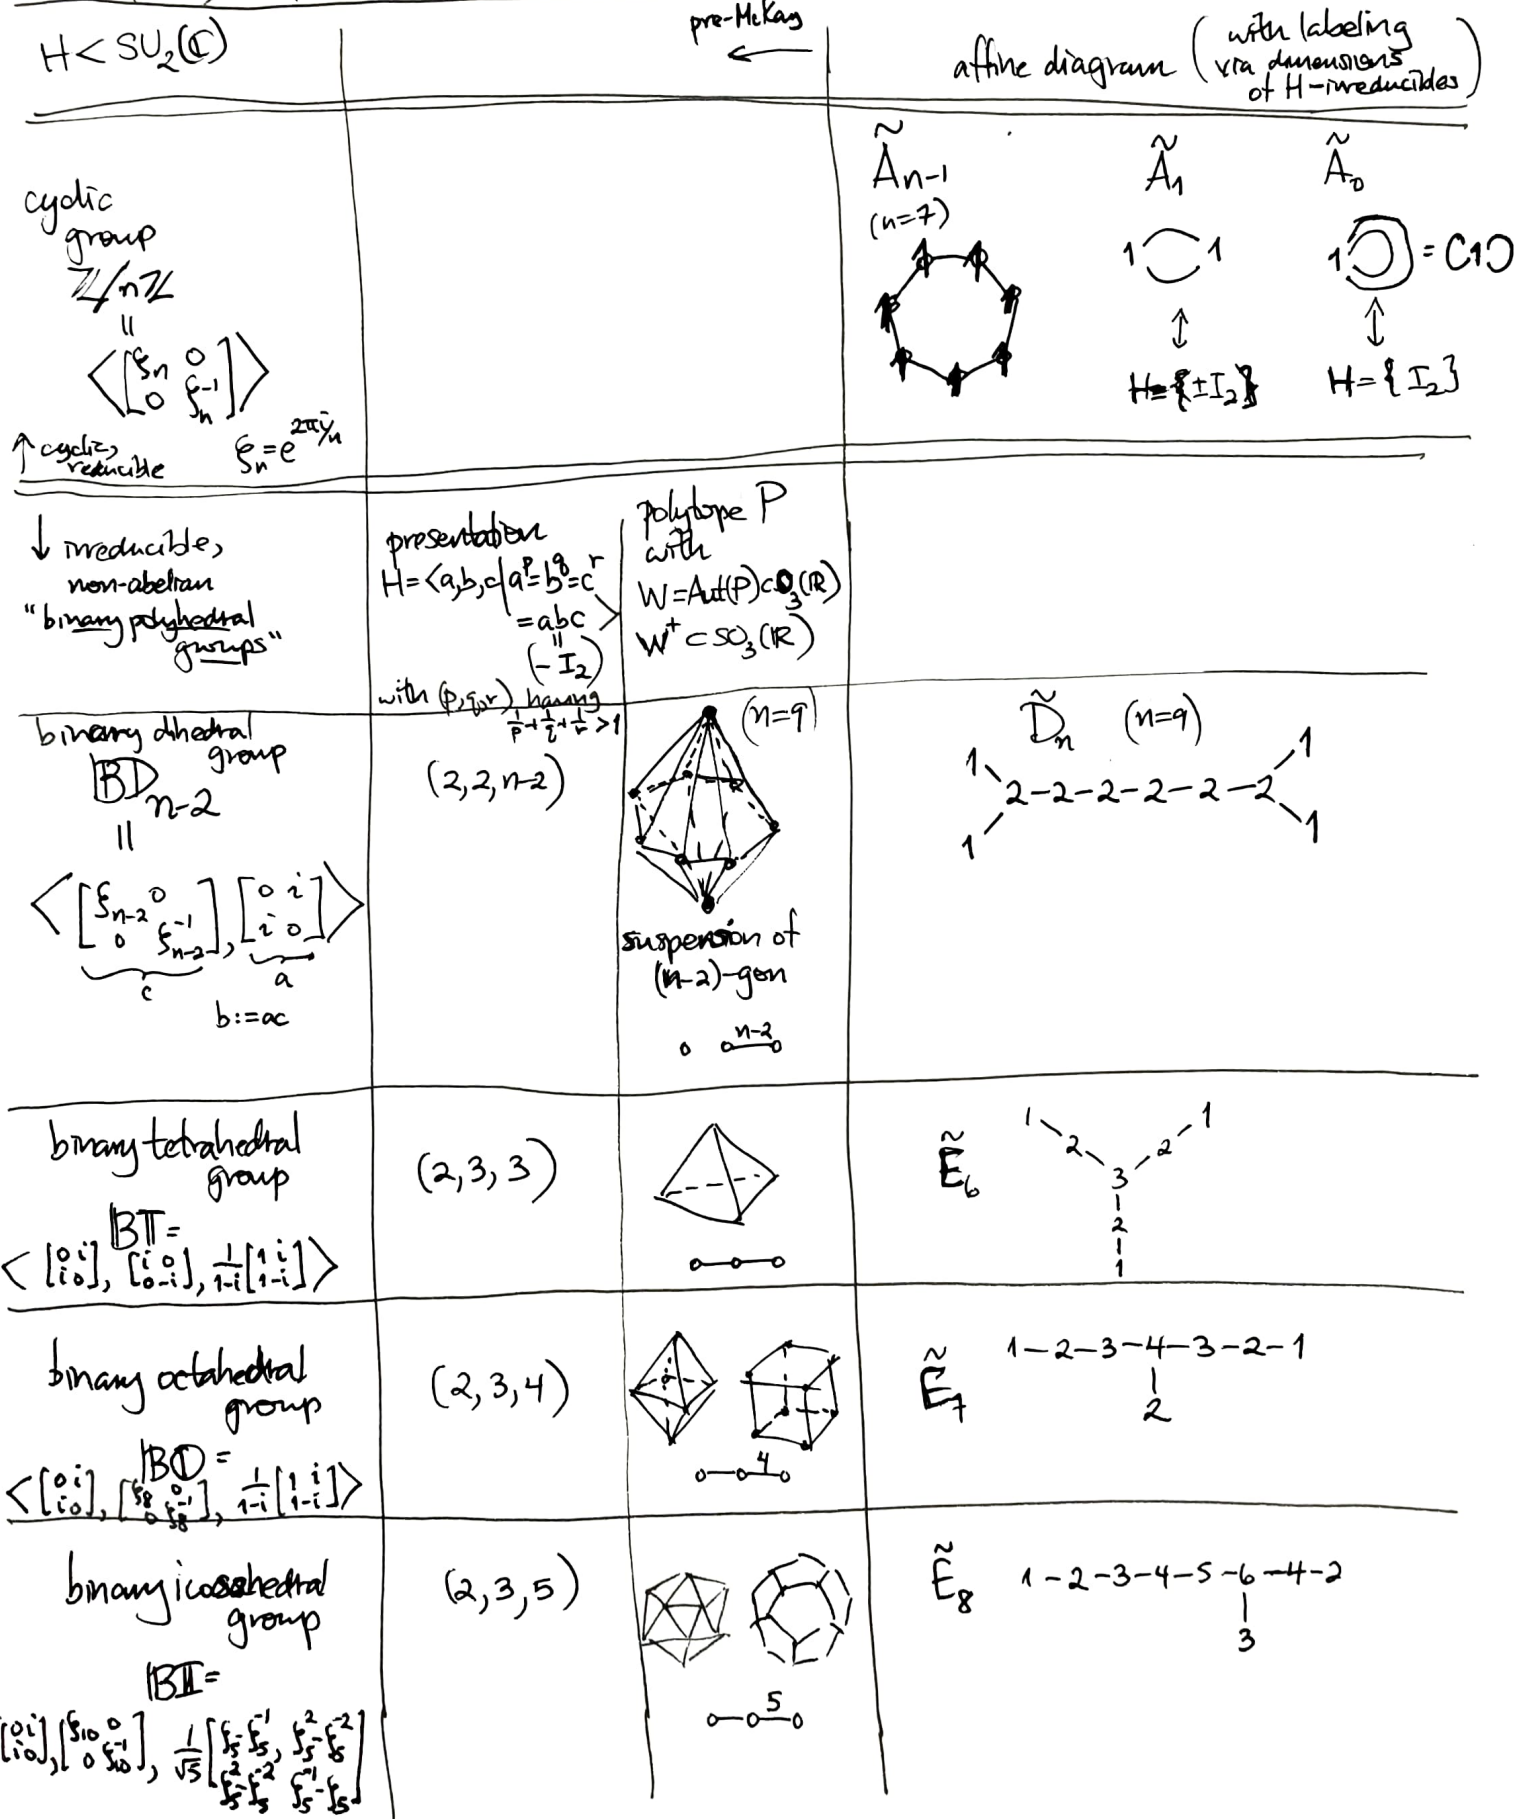 H < SU₂(ℂ)
pre-McKay
←
affine diagram (with labeling
via dimensions
of H-irreducibles)
cyclic
group
ℤ/nℤ
=
<[ξn 0
0 ξn⁻¹]>
ξn = e^{2πi/n}
↑ cyclic,
reducible
Ãn-1
(n=7)
1 1
1 1
1 1
1
Ã1
1 1
↕
H={±I₂}
Ã0
1 = C1Ɔ
↕
H={I₂}
↓ irreducible,
non-abelian
"binary polyhedral
groups"
presentation
H=<a,b,c|a^p=b^q=c^r
=abc>
=
(-I₂)
with (p,q,r) having
1/p+1/q+1/r >1
polytope P
with
W=Aut(P)⊂O₃(ℝ)
W⁺⊂SO₃(ℝ)
binary dihedral
group
𝔹𝔻n-2
=
<[ξn-2 0
0 ξn-2⁻¹], [0 i
i 0]>
c a
b:=ac
(2,2,n-2)
(n=9)
suspension of
(n-2)-gon
n-2
D̃n (n=9)
1 1
2-2-2-2-2-2
1 1
binary tetrahedral
group
𝔹𝕋=
<[0 i
i 0], [i 0
0 -i], 1/(1-i)[1 i
1 -i]>
(2,3,3)
Ẽ6
1 1
2 2
3
2
1
binary octahedral
group
𝔹𝕆=
<[0 i
i 0], [ξ8 0
0 ξ8⁻¹], 1/(1-i)[1 i
1 -i]>
(2,3,4)
4
Ẽ7
1-2-3-4-3-2-1
2
binary icosahedral
group
𝔹𝕀=
[0 i
i 0], [ξ10 0
0 ξ10⁻¹], 1/√5[ξ5-ξ5⁻¹, ξ5²-ξ5⁻²
ξ5²-ξ5⁻² ξ5⁻¹-ξ5]
(2,3,5)
5
Ẽ8
1-2-3-4-5-6-4-2
3